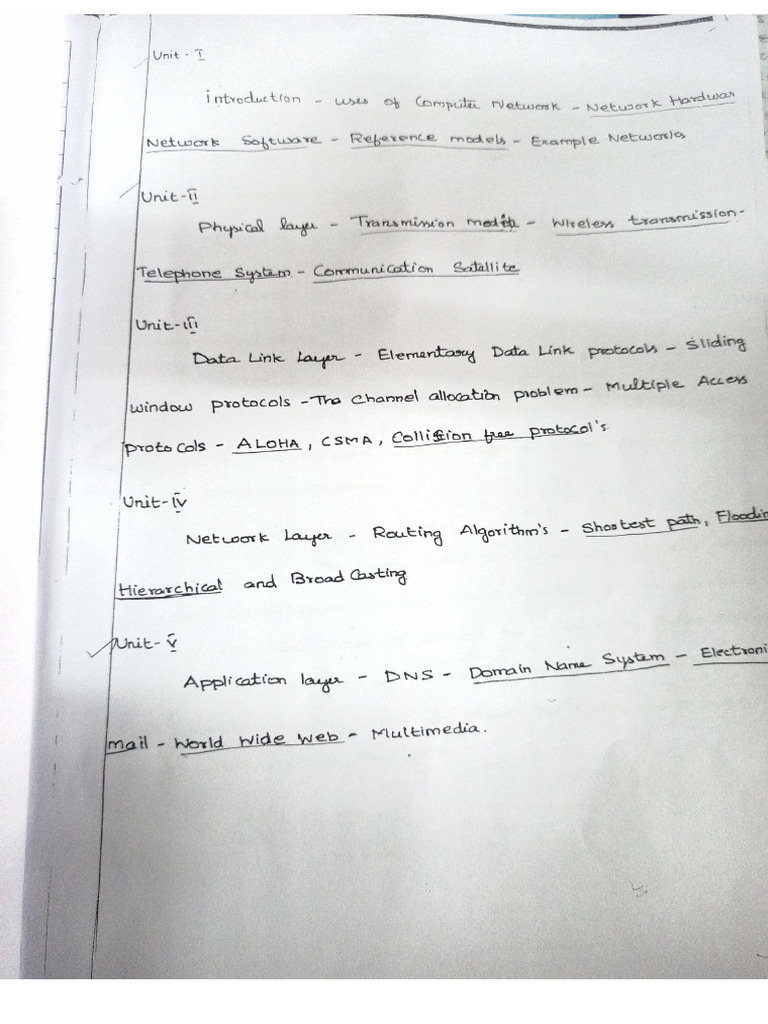 Unit - I
introduction - uses of Computer Network - Network Hardwar
Network Software - Reference models - Example Networks
Unit-II
Physical layer - Transmission media - Wireless transmission-
Telephone System - Communication Satallite
Unit-III
Data Link Layer - Elementary Data Link protocols - Sliding
window protocols - The Channel allocation problem - Multiple Access
protocols - ALOHA, CSMA, Collision free protocol's
Unit-IV
Network Layer - Routing Algorithm's - Shortest path, Floodin
Hierarchical and Broad Casting
Unit-V
Application layer - DNS - Domain Name System - Electroni
mail - World Wide Web - Multimedia.